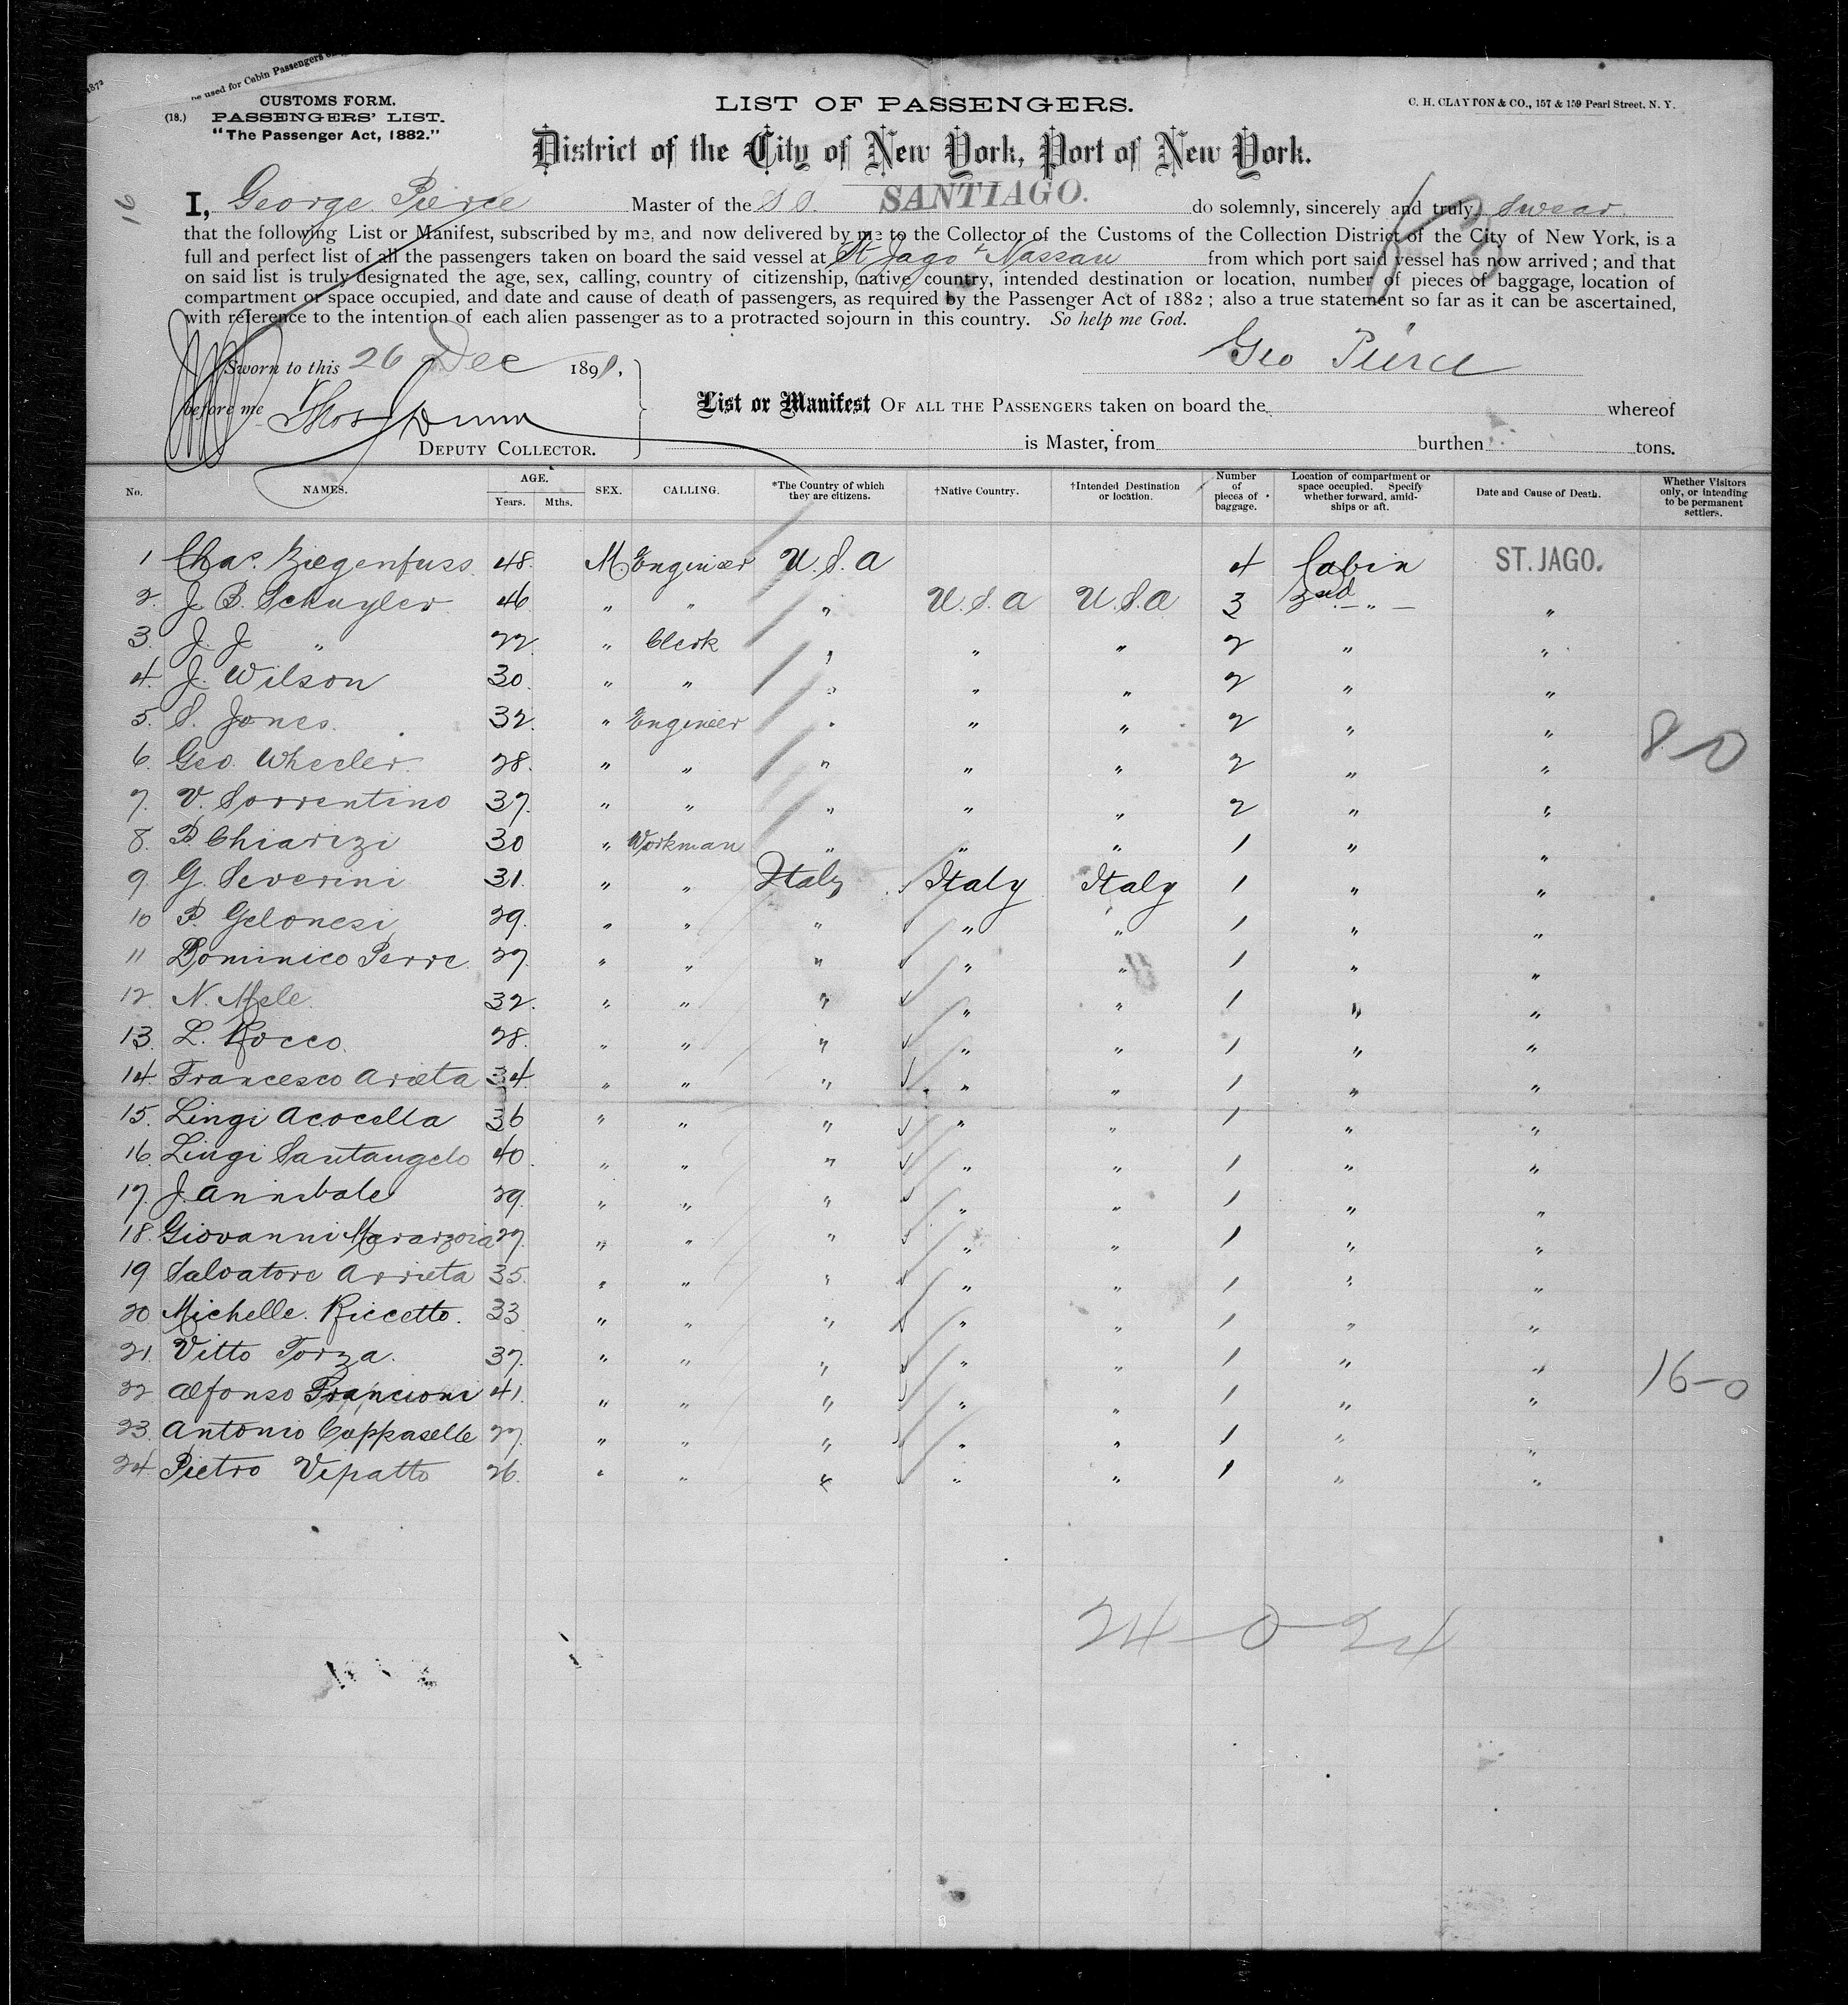 be used for Cabin Passengers
1872
CUSTOMS FORM.
(18.) PASSENGERS' LIST.
"The Passenger Act, 1882."
LIST OF PASSENGERS.
C. H. CLAYTON & CO., 157 & 159 Pearl Street, N. Y.
District of the City of New York, Port of New York.
16
I, George Pierce Master of the S S. SANTIAGO. do solemnly, sincerely and truly swear
that the following List or Manifest, subscribed by me, and now delivered by me to the Collector of the Customs of the Collection District of the City of New York, is a
full and perfect list of all the passengers taken on board the said vessel at St Jago & Nassau from which port said vessel has now arrived; and that
on said list is truly designated the age, sex, calling, country of citizenship, native country, intended destination or location, number of pieces of baggage, location of
compartment or space occupied, and date and cause of death of passengers, as required by the Passenger Act of 1882; also a true statement so far as it can be ascertained,
with reference to the intention of each alien passenger as to a protracted sojourn in this country. So help me God.
Sworn to this 26 Dec 1891,
Geo Pierce
before me Thos Dunn
DEPUTY COLLECTOR.
List or Manifest OF ALL THE PASSENGERS taken on board the whereof
is Master, from burthen tons.
No. NAMES. AGE. Years. Mths. SEX. CALLING. *The Country of which they are citizens. †Native Country. †Intended Destination or location. Number of pieces of baggage. Location of compartment or space occupied. Specify whether forward, amidships or aft. Date and Cause of Death. Whether Visitors only, or intending to be permanent settlers.
1 Chas. Ziegenfuss 48. M. Engineer U.S.A 4 Cabin ST. JAGO.
2. J. B. Schuyler 46 " " " U.S.A U.S.A 3 2nd - " - "
3. J. J " 22 " Clerk " " " 2 " "
4. J. Wilson 30. " " " " " 2 " "
5. S. Jones. 32. " Engineer " " " 2 " "
6. Geo. Wheeler. 28. " " " " " 2 " "
8-0
7. V. Sorrentino 37. " " " " " 2 " "
8. P. Chiarizi 30 " Workman " " " 1 " "
9. G. Severini 31. " " Italy Italy Italy 1 " "
10 P. Gelonesi 29. " " " " " 1 " "
11 Dominico Perre 27. " " " " " 1 " "
12. N. Mele. 32. " " " " " 1 " "
13. L. Rocco. 28. " " " " " 1 " "
14. Francesco Arieta 34. " " " " " 1 " "
15. Lingi Acocella 36 " " " " " 1 " "
16. Lingi Santangelo 40. " " " " " 1 " "
17. J. Annibale 29. " " " " " 1 " "
18. Giovanni 27. " " " " " 1 " "
19 Salvatore Arrieta 35. " " " " " 1 " "
20 Michelle. Riccetto. 33 " " " " " 1 " "
21. Vitto Torza. 37. " " " " " 1 " "
22 Alfonso Francioni 41. " " " " " 1 " "
16-0
23. Antonio Cappaselle 27. " " " " " 1 " "
24. Pietro Vipatto 26. " " " " " 1 " "
24-0-24